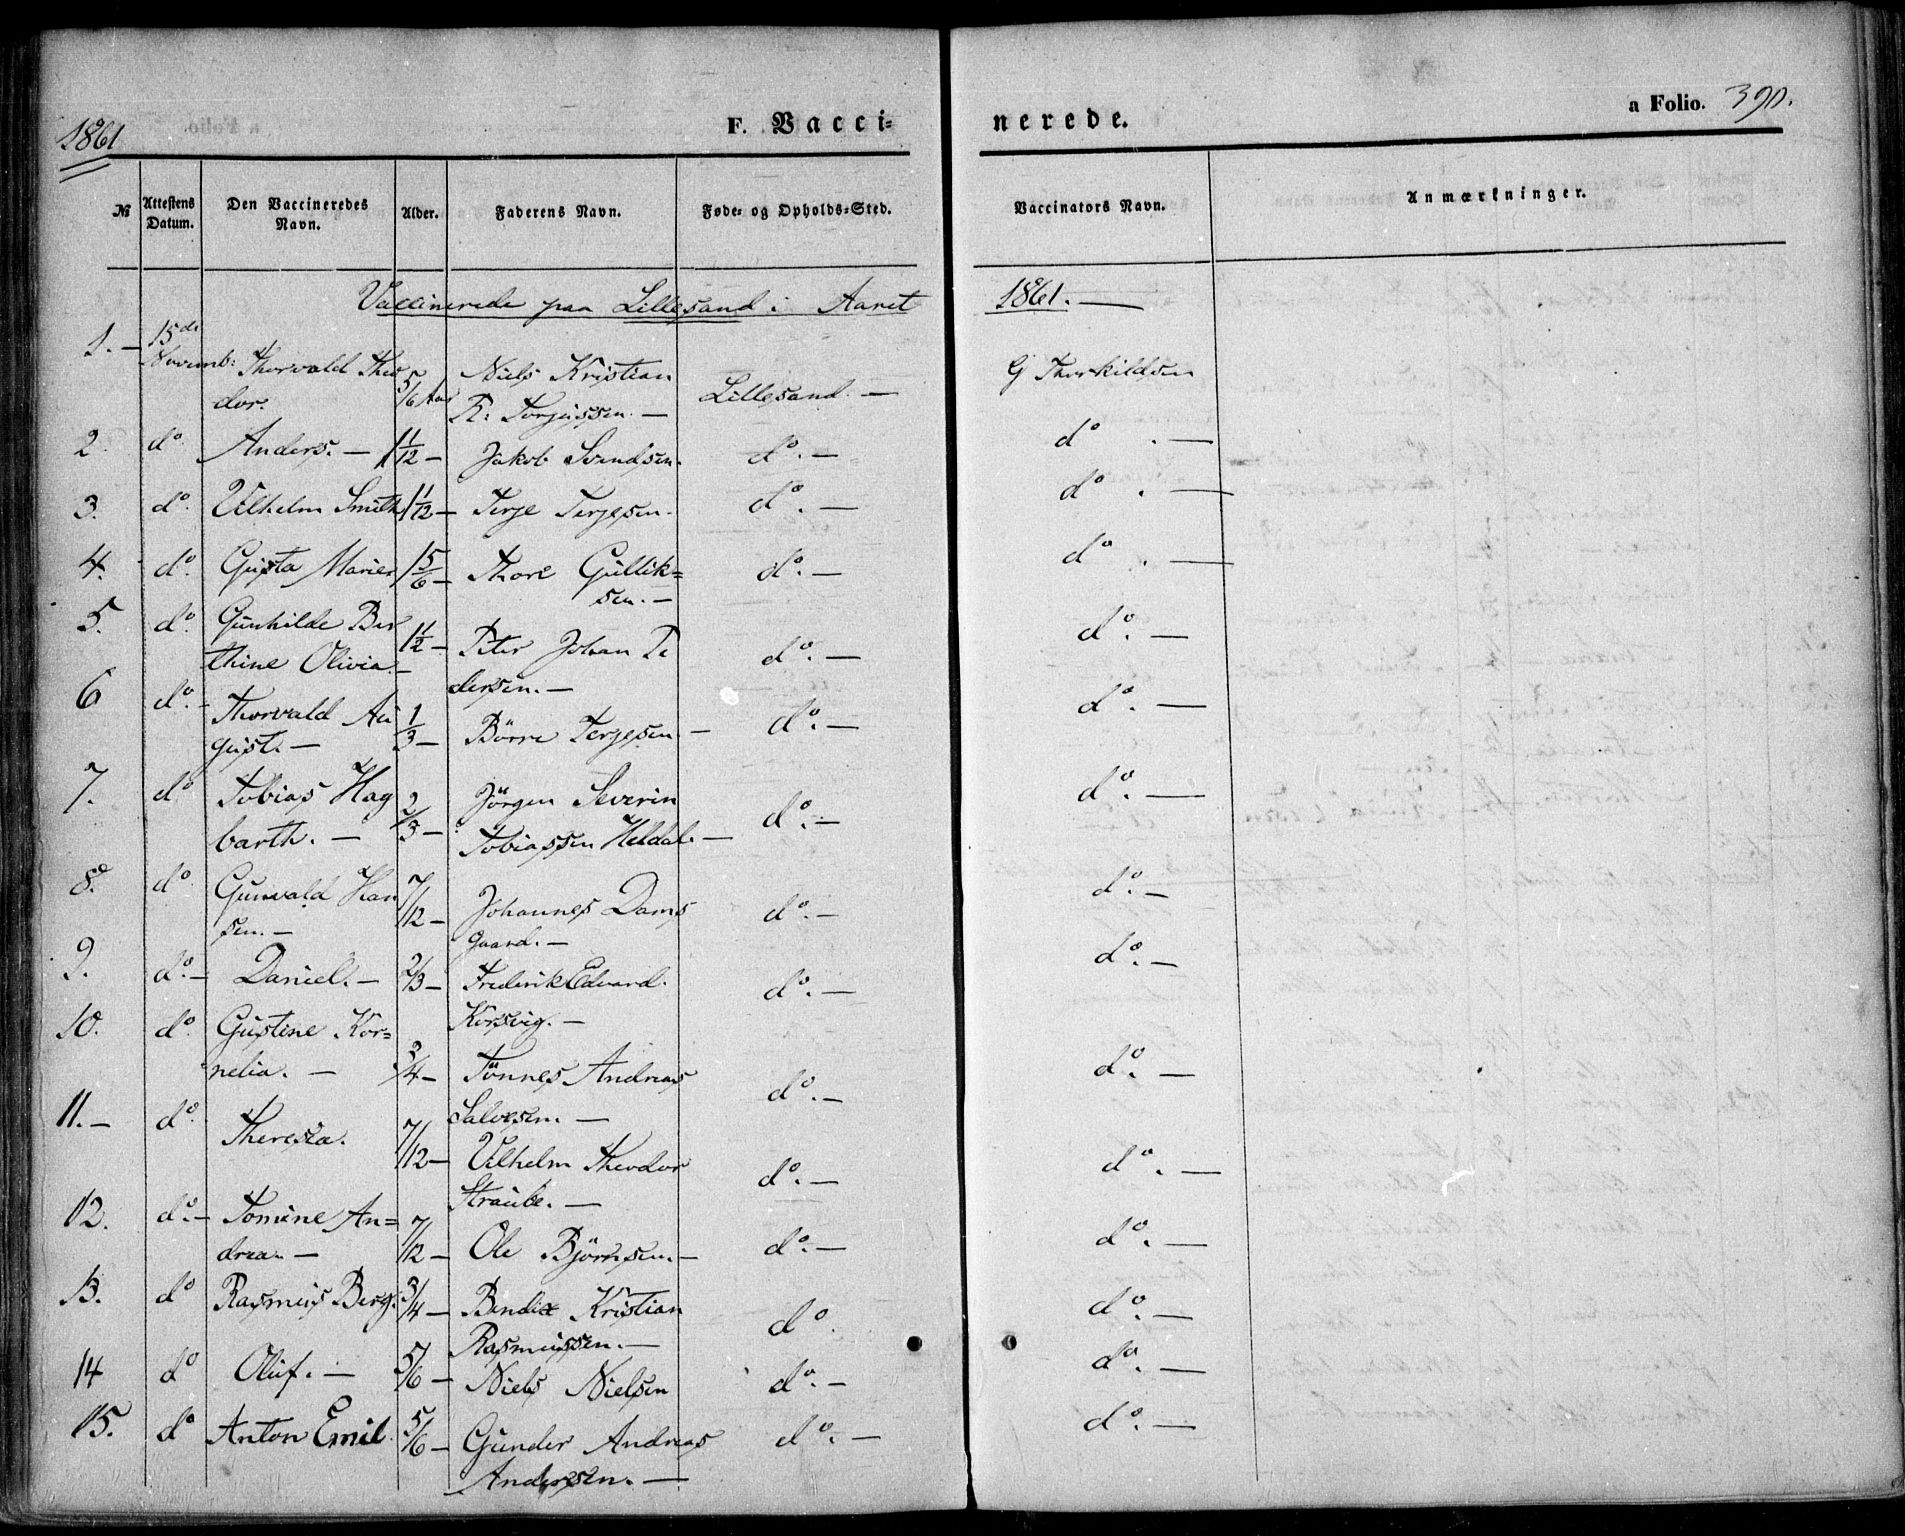 1861
F. Vacci=
nerede.
a Folio. 390.
№ Attestens Datum. Den Vaccineredes Navn. Alder. Faderens Navn. Føde- og Opholds-Sted. Vaccinators Navn. Anmærkninger.
Vaccinerede paa Lillesand i Aaret 1861. —
1. — 15de
Novemb: Thorvald Theo 5/6 Aar Niels Kristian Lillesand. — G Thorkildsen
dor. R: Torjussen. —
2. do Anders. — 1 1/12 — Jakob Svendsen. do. — do. —
3. do. Vilhelm Smith 1 1/12 — Terje Terjesen. do. — do. —
4. do. Gusta Marie 1 5/6 — Thore Gullik= do. — do. —
sen. —
5. do. Gunhilde Ber 1 1/2 — Peter Johan Pe do. — do. —
thine Olivia. — dersen. —
6 do. — Thorvald Au 1/3 — Börre Terjesen. — do. — do. —
gust. —
7. do Tobias Hag 2/3 — Jörgen Severin do. — do. —
barth. — Tobiassen Heldal. —
8. do. Gunvald Han 7/12 — Johannes Dams do. — do. —
sen. — gaard. —
9. do. — Daniel. — 2/3 — Frederik Edvard. do. — do. —
Korsvig. —
10. do. Gustine Kor= 3/4 — Tönnes Andreas do. — do. —
nelia. — Salvesen. —
11. — do. Theresia. 7/12 — Vilhelm Theodor do. — do. —
Straube. —
12. do. — Tomine An= 7/12 — Ole Björnsen. — do. — do. —
drea. —
13. do Rasmus Berg. 3/4 — Bendix Kristian do. do. —
Rasmussen. —
14 do Oluf. — 5/6 — Niels Nielsen do. — do. —
15. do Anton Emil 5/6 — Gunder Andreas do. — do. —
Andersen. —